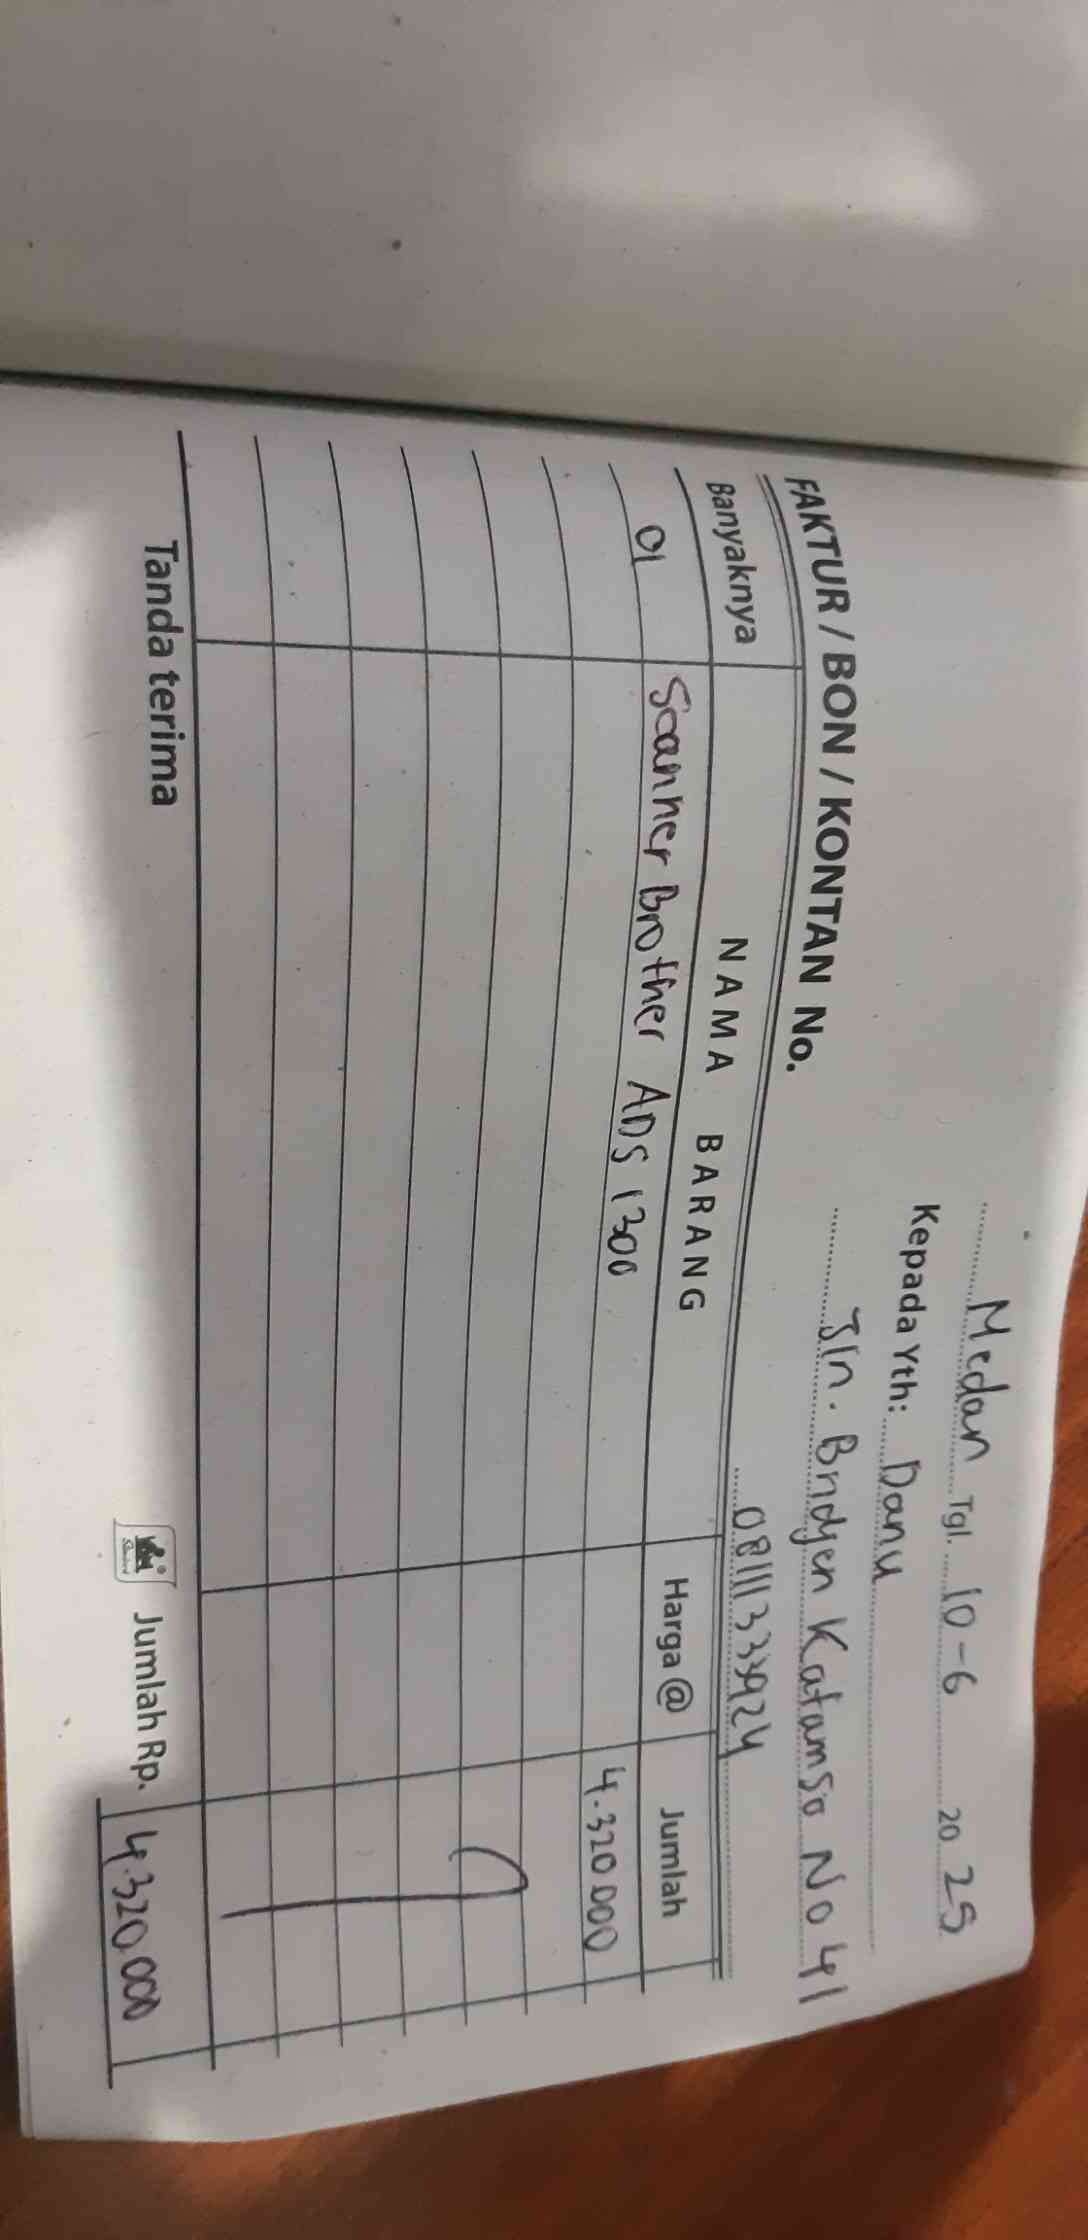 Medan Tgl. 10-6 20 25
Kepada Yth: Danu
Jln. Bridjen Katamso No 41
FAKTUR / BON / KONTAN No.
081113339924
Banyaknya NAMA BARANG Harga @ Jumlah
01 Scanner Brother ADS 1300 4.320.000
Tanda terima Jumlah Rp. 4.320.000